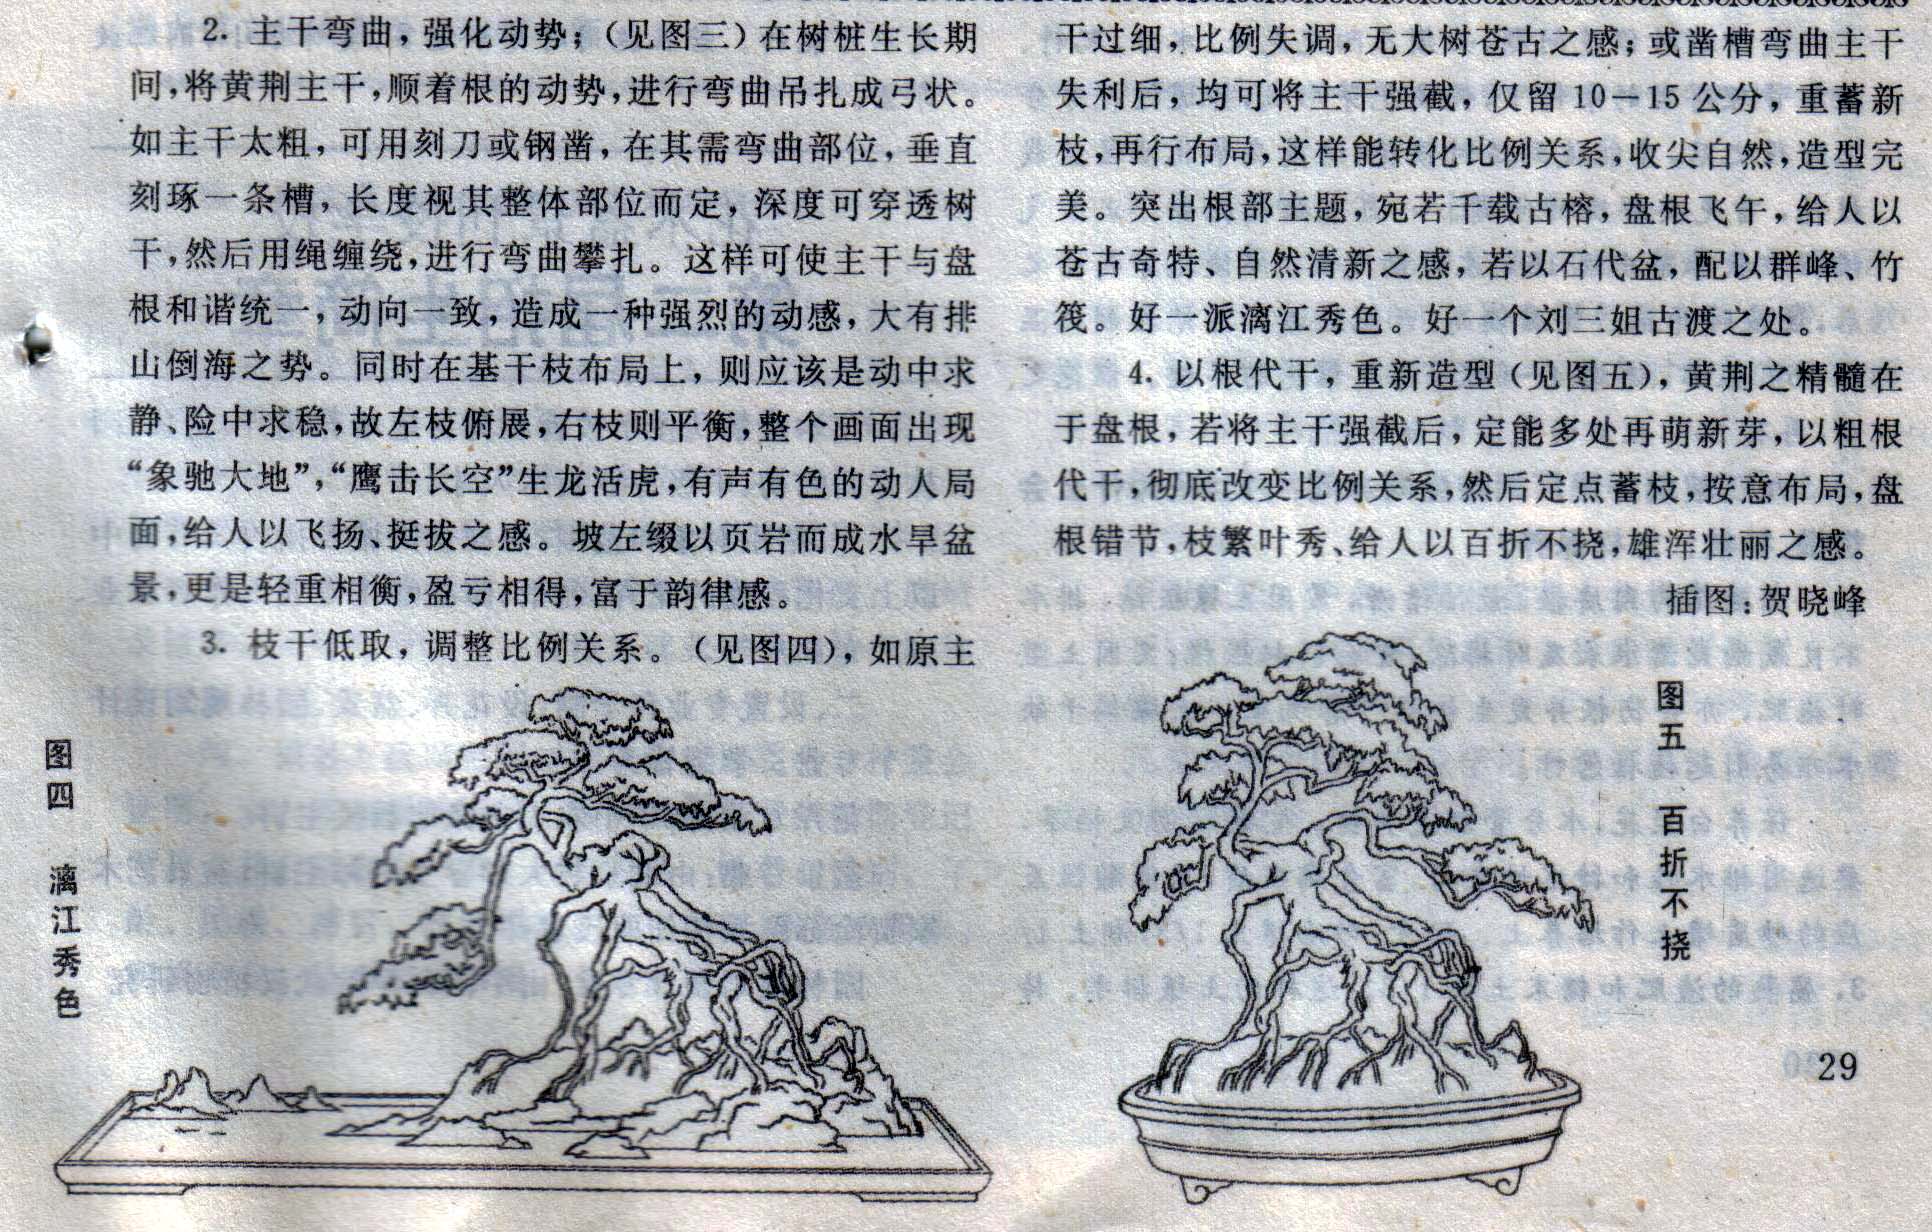 2. 主干弯曲，强化动势；（见图三）在树桩生长期
间，将黄荆主干，顺着根的动势，进行弯曲吊扎成弓状。
如主干太粗，可用刻刀或钢凿，在其需弯曲部位，垂直
刻琢一条槽，长度视其整体部位而定，深度可穿透树
干，然后用绳缠绕，进行弯曲攀扎。这样可使主干与盘
根和谐统一，动向一致，造成一种强烈的动感，大有排
山倒海之势。同时在基干枝布局上，则应该是动中求
静、险中求稳，故左枝俯展，右枝则平衡，整个画面出现
“象驰大地”，“鹰击长空”生龙活虎，有声有色的动人局
面，给人以飞扬、挺拔之感。坡左缀以页岩而成水旱盆
景，更是轻重相衡，盈亏相得，富于韵律感。
3. 枝干低取，调整比例关系。（见图四），如原主
干过细，比例失调，无大树苍古之感；或凿槽弯曲主干
失利后，均可将主干强截，仅留10－15公分，重蓄新
枝，再行布局，这样能转化比例关系，收尖自然，造型完
美。突出根部主题，宛若千载古榕，盘根飞午，给人以
苍古奇特、自然清新之感，若以石代盆，配以群峰、竹
筏。好一派漓江秀色。好一个刘三姐古渡之处。
4. 以根代干，重新造型（见图五），黄荆之精髓在
于盘根，若将主干强截后，定能多处再萌新芽，以粗根
代干，彻底改变比例关系，然后定点蓄枝，按意布局，盘
根错节，枝繁叶秀、给人以百折不挠，雄浑壮丽之感。
插图：贺晓峰
图四 漓江秀色
图五 百折不挠
29